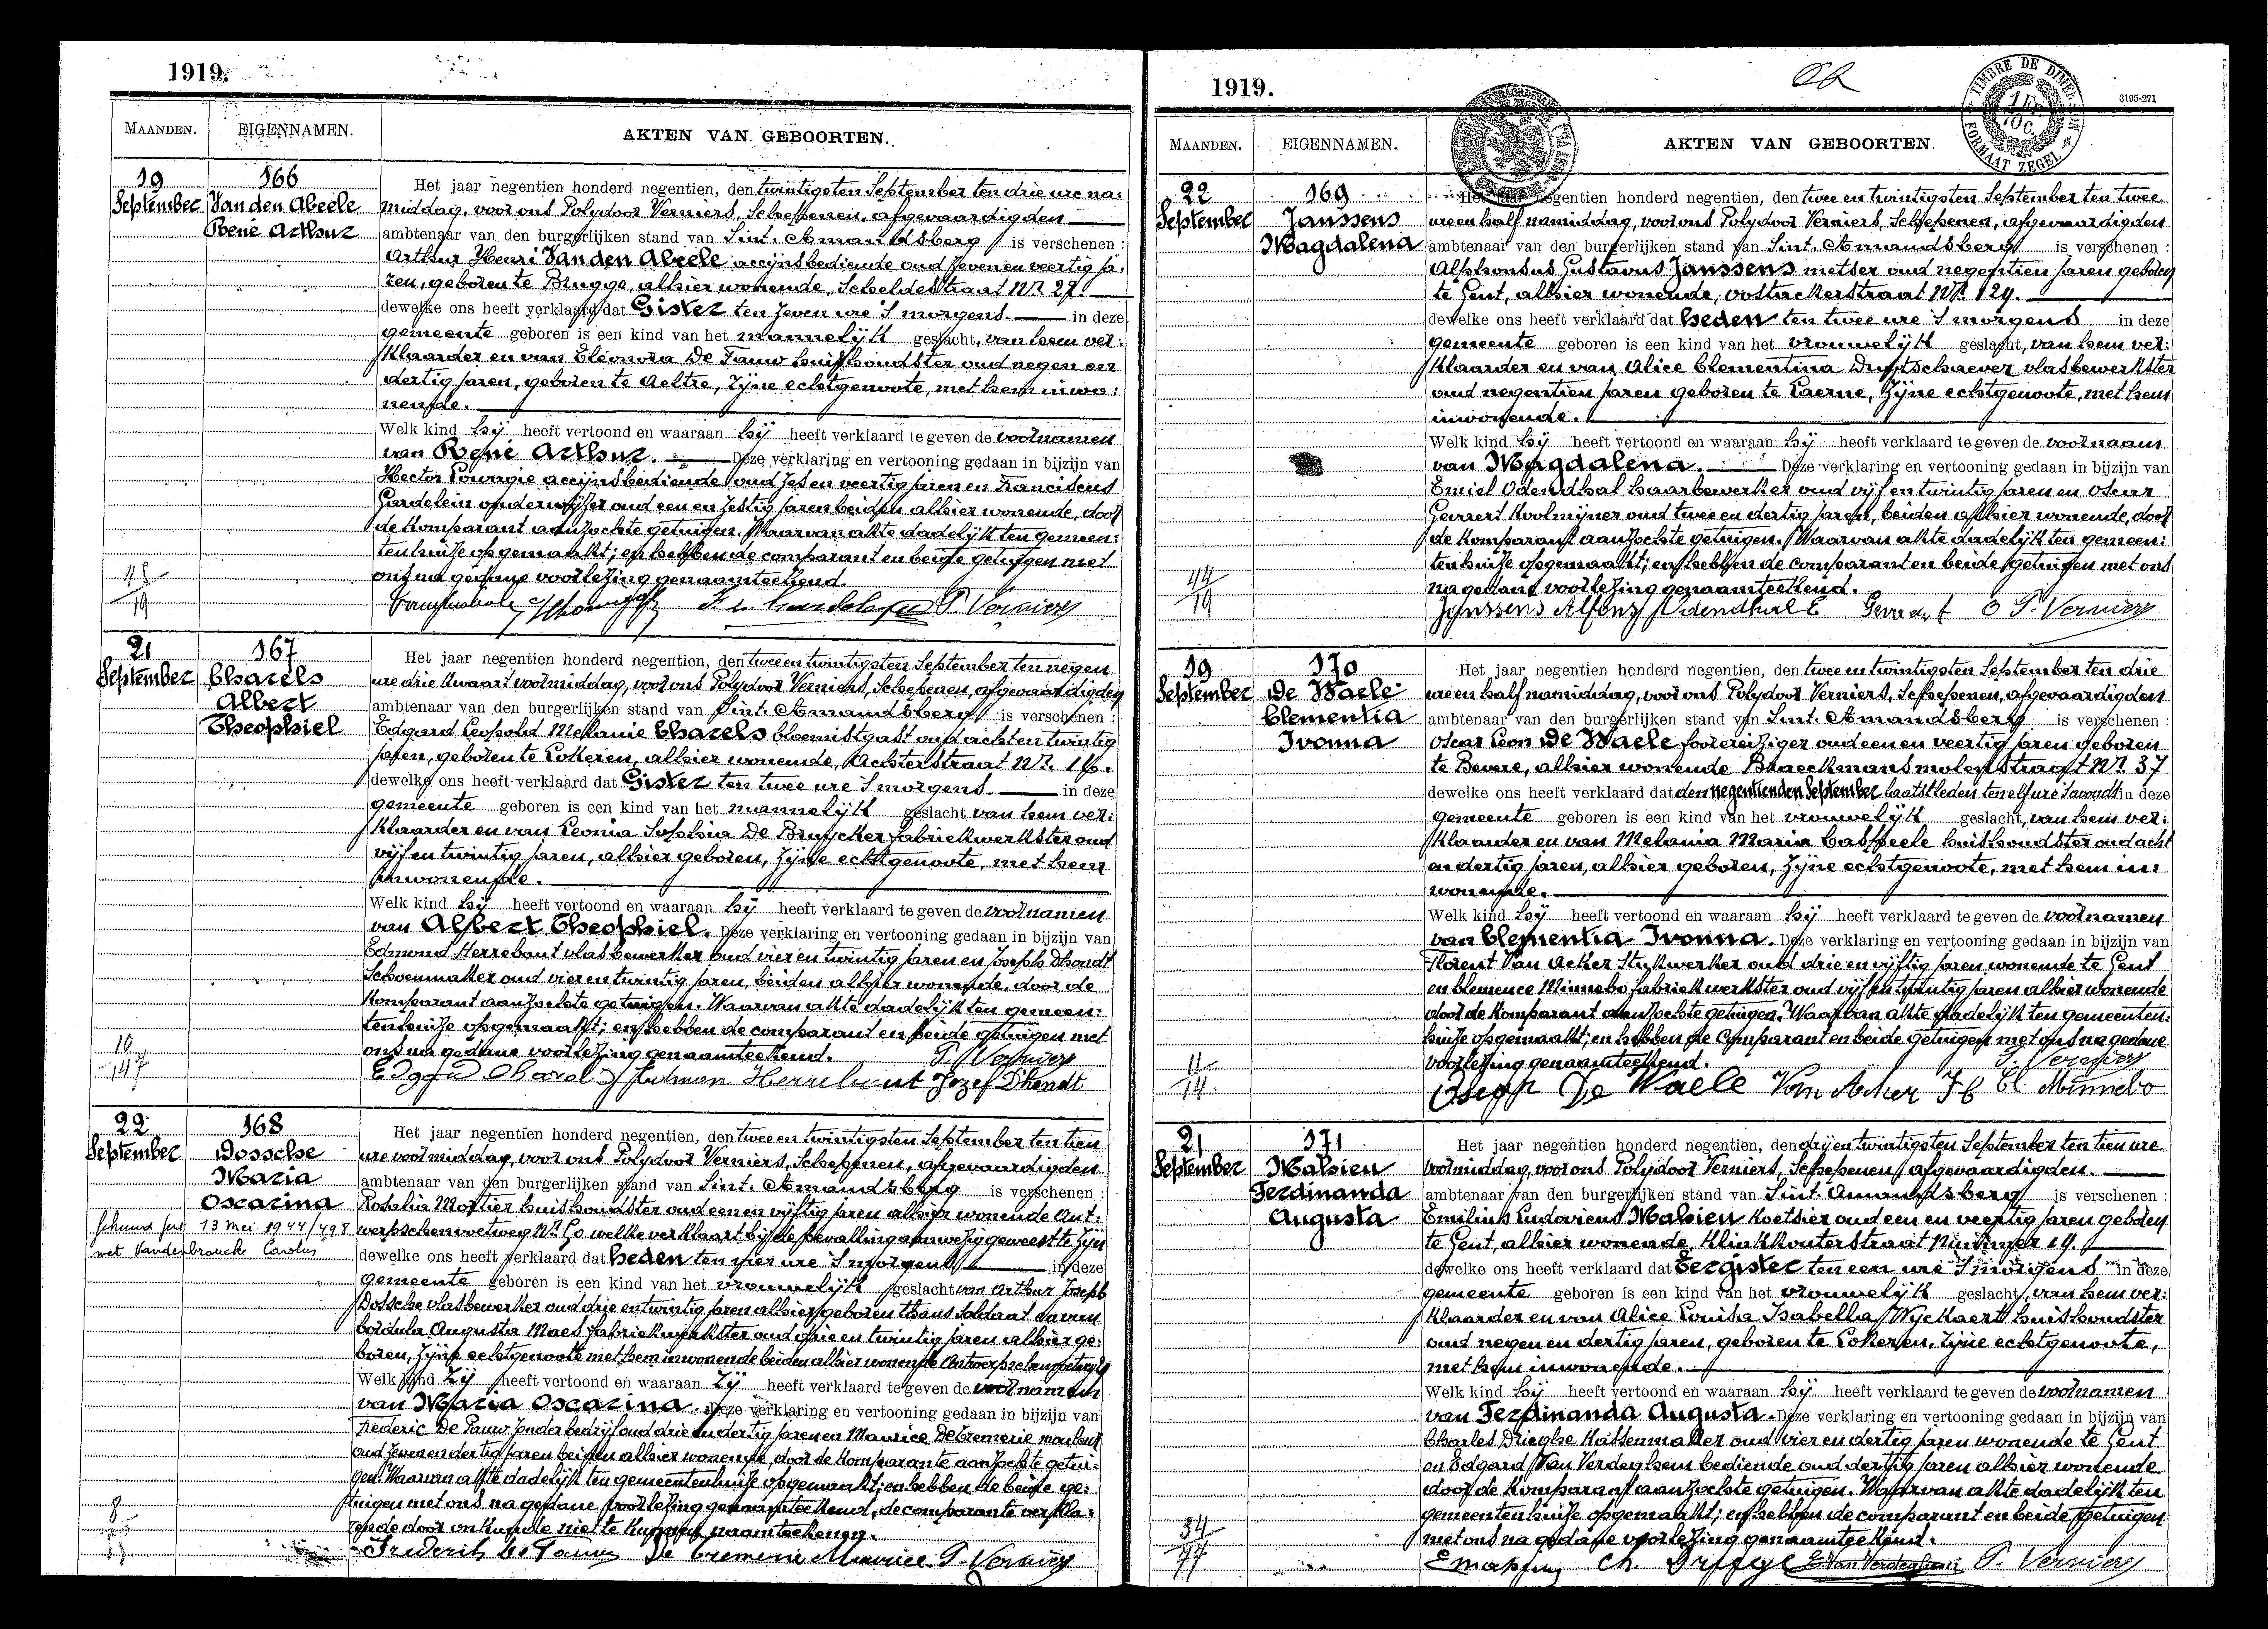 1919.
MAANDEN. EIGENNAMEN. AKTEN VAN GEBOORTEN.
19 September
166
Van den Abeele
René Arthur
Het jaar negentien honderd negentien, den twintigsten September ten drie ure na:
middag, voor ons Polydoor Verniers, Schepenen, afgevaardigden
ambtenaar van den burgerlijken stand van Sint. Amandsberg is verschenen :
Arthur Henri Van den Abeele accijnsbediende oud zeven en veertig ja:
ren, geboren te Brugge, alhier wonende, Scheldestraat Nr. 27.
dewelke ons heeft verklaard dat Gister ten zeven ure 's morgens. in deze
gemeente geboren is een kind van het mannelijk geslacht, van hem ver:
klaarder en van Eleonora De Fauw huishoudster oud negen en
dertig jaren, geboren te Aeltre, zijne echtgenoote, met hem inwo:
nende.
Welk kind hij heeft vertoond en waaraan hij heeft verklaard te geven de voornamen
van René Arthur. Deze verklaring en vertooning gedaan in bijzijn van
Hector accijnsbediende oud zes en veertig jaren en Franciscus
Gardelein onderwijzer oud een en zestig jaren beiden alhier wonende, door
de komparant aanzochte getuigen. Waarvan akte dadelijk ten gemeen:
tenhuize opgemaakt; en hebben de comparant en beide getuigen met
ons na gedane voorlezing genaamteekend.
P. Verniers
19
21 September
167
Charels
Albert
Theophiel
Het jaar negentien honderd negentien, den twee en twintigsten September ten negen
ure drie kwaart voormiddag, voor ons Polydoor Verniers, Schepenen, afgevaardigden
ambtenaar van den burgerlijken stand van Sint. Amandsberg is verschenen :
Edgard Leopold Melanie Charels bloemistgast oud acht en twintig
jaren, geboren te Lokeren, alhier wonende, Achterstraat Nr. 16.
dewelke ons heeft verklaard dat Gister ten twee ure 's morgens. in deze
gemeente geboren is een kind van het mannelijk geslacht van hem ver:
klaarder en van Leonia Sophia De Bruycker fabriekwerkster oud
vijf en twintig jaren, alhier geboren, zijne echtgenoote, met hem
inwonende.
Welk kind hij heeft vertoond en waaraan hij heeft verklaard te geven de voornamen
van Albert Theophiel. Deze verklaring en vertooning gedaan in bijzijn van
Edmond Herrebout vlasbewerker oud vier en twintig jaren en Joseph Dhondt
Schoenmaker oud vier en twintig jaren, beiden alhier wonende, door de
komparant aanzochte getuigen. Waarvan akte dadelijk ten gemeen:
tenhuize opgemaakt; en hebben de comparant en beide getuigen met
ons na gedane voorlezing genaamteekend. P. Verniers
10
147
Edgard Charels Herrebout Jozef Dhondt
22 September
168
Dossche
Maria
Oscarina
13 Mei 1944 / 498
met Vandenbroucke Carolus
Het jaar negentien honderd negentien, den twee en twintigsten September ten tien
ure voormiddag, voor ons Polydoor Verniers, Schepenen, afgevaardigden
ambtenaar van den burgerlijken stand van Sint. Amandsberg is verschenen :
Rosalia Mortier huishoudster oud een en vijftig jaren alhier wonende Ant:
werpschenvoetweg Nr. 60 welke verklaart bij de bevalling aanwezig geweest te zijn
dewelke ons heeft verklaard dat heden ten vier ure 's morgens in deze
gemeente geboren is een kind van het vrouwelijk geslacht van Arthur Joseph
Dossche vlasbewerker oud drie en twintig jaren alhier geboren thans soldaat en van
Cordula Augusta Maes fabriekwerkster oud drie en twintig jaren alhier ge:
boren, zijne echtgenoote met hem inwonende beiden alhier wonende Antwerpschenvoetweg
Welk kind zij heeft vertoond en waaraan zij heeft verklaard te geven de voornamen
van Maria Oscarina. Deze verklaring en vertooning gedaan in bijzijn van
Frederic De Pauw zonder bedrijf oud drie en dertig jaren en Maurice Decremerie mouleur
oud zeven en dertig jaren beiden alhier wonende, door de komparante aanzochte getui-
gen. Waarvan akte dadelijk ten gemeentenhuize opgemaakt; en hebben de beide ge:
tuigen met ons na gedane voorlezing genaamteekend, de comparante verkla:
rende door onkunde niet te kunnen naamteekenen.
8
Frederik De Pauw De Cremerie Maurice P. Verniers
1919.
TIMBRE DE DIMENSION
1 FR. 10 C.
FORMAAT ZEGEL
3195-271
MAANDEN. EIGENNAMEN. AKTEN VAN GEBOORTEN.
22 September
169
Janssens
Magdalena
Het jaar negentien honderd negentien, den twee en twintigsten September ten twee
ure en half namiddag, voor ons Polydoor Verniers, Schepenen, afgevaardigden
ambtenaar van den burgerlijken stand van Sint. Amandsberg is verschenen :
Alphonsus Gustavus Janssens metser oud negentien jaren geboren
te Gent, alhier wonende, oostackerstraat Nr. 129.
dewelke ons heeft verklaard dat heden ten twee ure 's morgens in deze
gemeente geboren is een kind van het vrouwelijk geslacht, van hem ver:
klaarder en van Alice Clementina Duytschaever vlasbewerkster
oud negentien jaren geboren te Laerne, zijne echtgenoote, met hem
inwonende.
Welk kind hij heeft vertoond en waaraan hij heeft verklaard te geven de voornaam
van Magdalena. Deze verklaring en vertooning gedaan in bijzijn van
Emiel Odendhal haarbewerker oud vijf en twintig jaren en Oscar
Gevaert koolmijner oud twee en dertig jaren, beiden alhier wonende, door
de komparant aanzochte getuigen. Waarvan akte dadelijk ten gemeen:
tenhuize opgemaakt; en hebben de comparant en beide getuigen met ons
na gedane voorlezing genaamteekend.
44
19
Janssens Alfons Odendhal E Gevaert O P. Verniers
19 September
170
De Waele
Clementia
Ivonna
Het jaar negentien honderd negentien, den twee en twintigsten September ten drie
ure en half namiddag, voor ons Polydoor Verniers, Schepenen, afgevaardigden
ambtenaar van den burgerlijken stand van Sint. Amandsberg is verschenen :
Oscar Leon De Waele foorreiziger oud een en veertig jaren geboren
te Bevere, alhier wonende Braeckmansmolenstraat Nr. 37
dewelke ons heeft verklaard dat den negentienden September laatstleden ten elf ure 's avonds in deze
gemeente geboren is een kind van het vrouwelijk geslacht, van hem ver:
klaarder en van Melania Maria Casteele huishoudster oud acht
en dertig jaren, alhier geboren, zijne echtgenoote, met hem in:
wonende.
Welk kind hij heeft vertoond en waaraan hij heeft verklaard te geven de voornamen
van Clementia Ivonna. Deze verklaring en vertooning gedaan in bijzijn van
Florent Van Acker stukwerker oud drie en vijftig jaren wonende te Gent
en Clemence Minnebo fabriekwerkster oud vijf en twintig jaren alhier wonende
door de komparant aanzochte getuigen. Waarvan akte dadelijk ten gemeenten:
huize opgemaakt; en hebben de comparant en beide getuigen met ons na gedane
voorlezing genaamteekend. P. Verniers
11
14.
De Waele Van Acker Fl Cl. Minnebo
21 September
171
Mahieu
Ferdinanda
Augusta
Het jaar negentien honderd negentien, den drij en twintigsten September ten tien ure
voormiddag, voor ons Polydoor Verniers, Schepenen, afgevaardigden.
ambtenaar van den burgerlijken stand van Sint. Amandsberg is verschenen :
Emilius Ludovicus Mahieu koetsier oud een en veertig jaren geboren
te Gent, alhier wonende, Klinkkouterstraat Nummer 19.
dewelke ons heeft verklaard dat Eergister ten een ure 's morgens in deze
gemeente geboren is een kind van het vrouwelijk geslacht, van hem ver:
klaarder en van Alice Louisa Isabella Wyckaert huishoudster
oud negen en dertig jaren, geboren te Lokeren, zijne echtgenoote,
met hem inwonende.
Welk kind hij heeft vertoond en waaraan hij heeft verklaard te geven de voornamen
van Ferdinanda Augusta. Deze verklaring en vertooning gedaan in bijzijn van
Charles Drieghe kassenmaker oud vier en dertig jaren wonende te Gent
en Edgard Van Verdeghem bediende oud dertig jaren alhier wonende
door de komparant aanzochte getuigen. Waarvan akte dadelijk ten
gemeentenhuize opgemaakt; en hebben de comparant en beide getuigen
met ons na gedane voorlezing genaamteekend.
34
77
E Mahieu Ch. Drieghe E Van Verdeghem P. Verniers